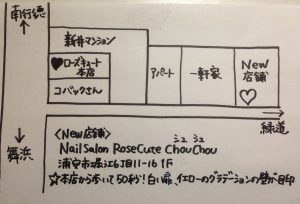 南行徳
新井マンション
ローズキュート
本店
コバックさん
アパート
一軒家
New
店舗
緑道
舞浜
<New店舗>
シュ シュ
Nail Salon RoseCute ChouChou
浦安市堀江6丁目11-16 1F
☆本店から歩いて50秒！白い扉、イエローのグラデーションの壁が目印